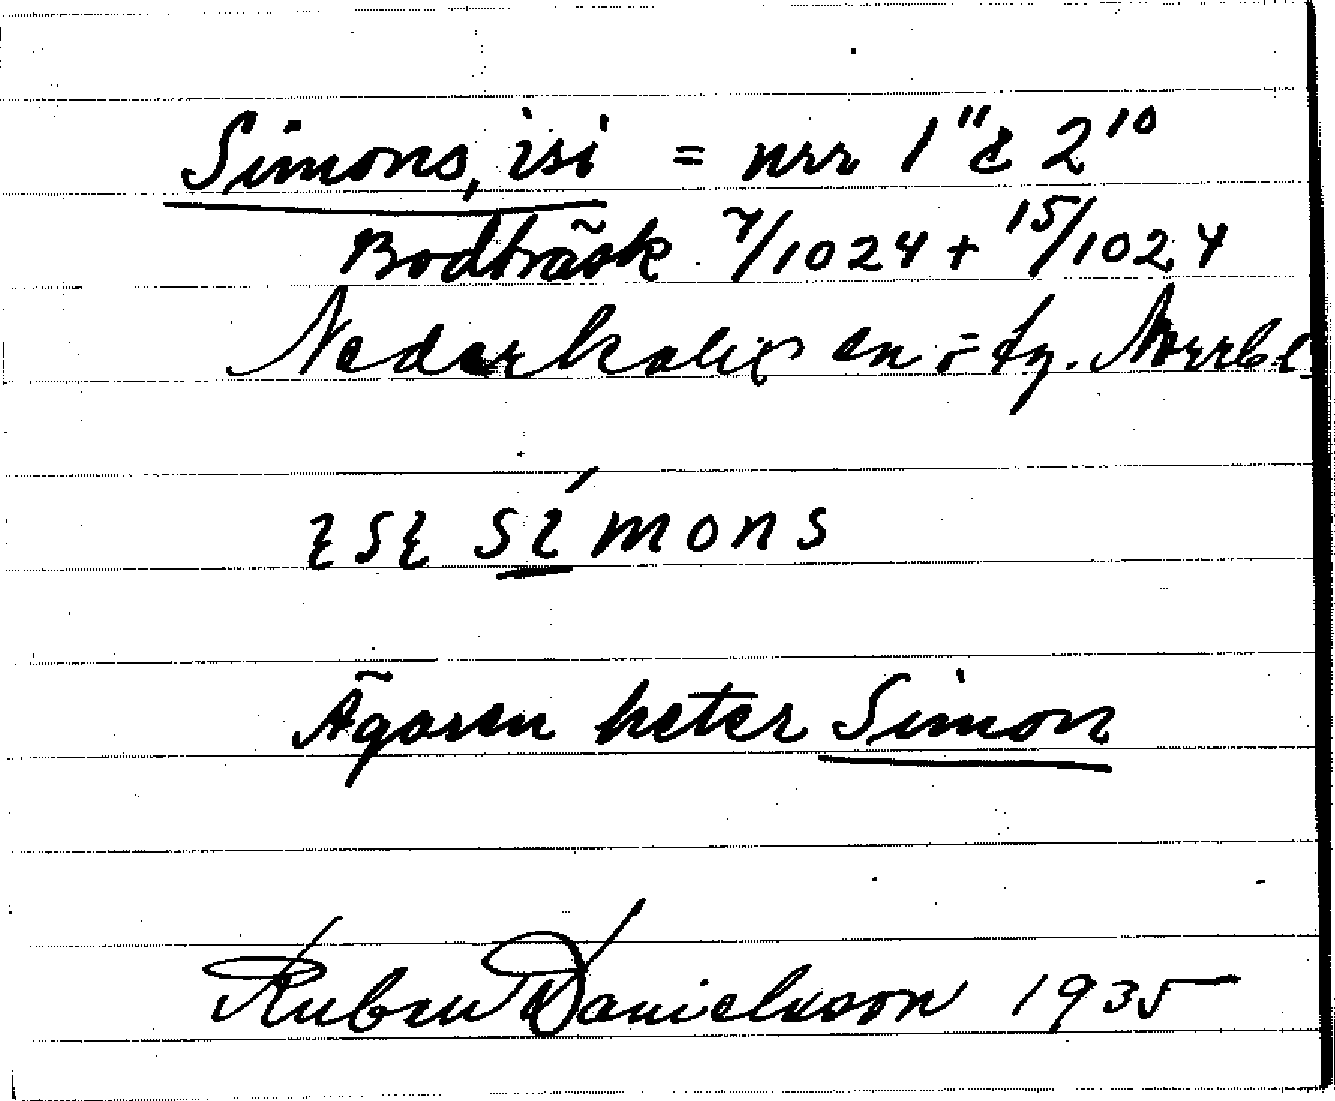 Simons, isi = nrr 1¹¹ & 2¹⁰
Bodträsk 7/1024 + 15/1024
Nederkalix sn i fg. Norrb. l.
ısı símons
Ägaren heter Simon
Ruben Danielsson 1935